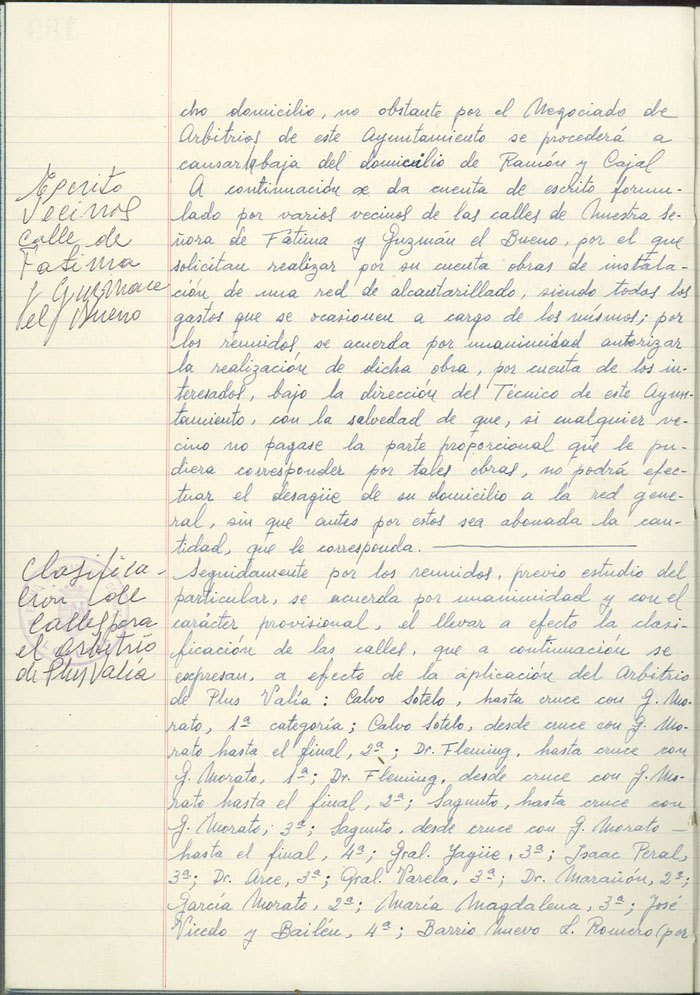 cho domicilio, no obstante por el Negociado de
Arbitrios de este Ayuntamiento se procederá a
causar baja del domicilio de Ramón y Cajal
Escrito
Vecinos
calle de
Fatima
y Guzman
el Bueno
A continuación se da cuenta de escrito formu-
lado por varios vecinos de las calles de Nuestra Se-
ñora de Fátima y Guzmán el Bueno, por el que
solicitan realizar por su cuenta obras de instala-
ción de una red de alcantarillado, siendo todos los
gastos que se ocasionen a cargo de los mismos; por
los reunidos se acuerda por unanimidad autorizar
la realización de dicha obra, por cuenta de los in-
teresados, bajo la dirección del Técnico de este Ayun-
tamiento, con la salvedad de que, si cualquier ve-
cino no pagase la parte proporcional que le pu-
diera corresponder por tales obras, no podrá efec-
tuar el desagüe de su domicilio a la red gene-
ral, sin que antes por estos sea abonada la can-
tidad, que le corresponda.
Clasifica-
cion de
Calles para
el arbitrio
de Plus Valía
Seguidamente por los reunidos, previo estudio del
particular, se acuerda por unanimidad y con el
carácter provisional, el llevar a efecto la clasi-
ficación de las calles, que a continuación se
expresan, a efecto de la aplicación del Arbitrio
de Plus Valía: Calvo Sotelo, hasta cruce con G. Mo-
rato, 1ª categoría; Calvo Sotelo, desde cruce con G. Mo-
rato hasta el final, 2ª; Dr. Fleming, hasta cruce con
G. Morato, 1ª; Dr. Fleming, desde cruce con G. Mo-
rato hasta el final, 2ª; Sagunto, hasta cruce con
G. Morato, 3ª; Sagunto, desde cruce con G. Morato –
hasta el final, 4ª; Gral. Yagüe, 3ª; Isaac Peral,
3ª; Dr. Arce, 3ª; Gral. Varela, 3ª; Dr. Marañón, 2ª;
García Morato, 2ª; María Magdalena, 3ª; José
Vicedo y Bailén, 4ª; Barrio Nuevo L. Romero (por